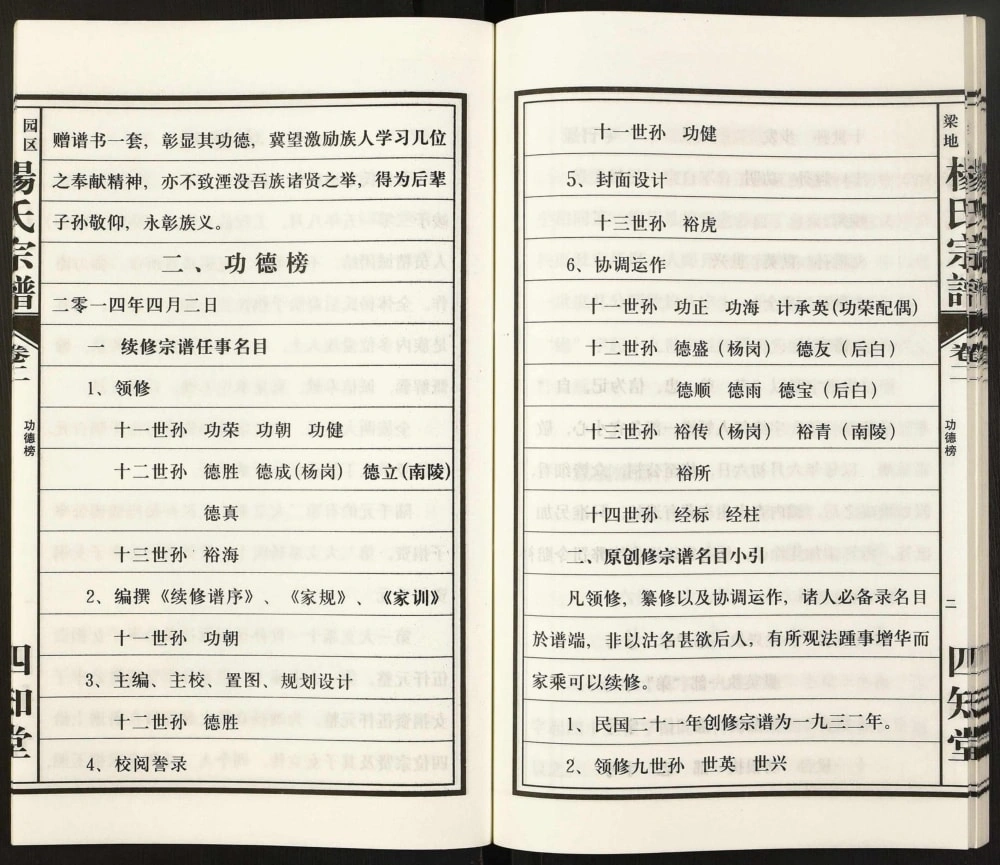 园区
楊氏宗譜
卷二
功德榜
四知堂
赠谱书一套，彰显其功德，冀望激励族人学习几位
之奉献精神，亦不致湮没吾族诸贤之举，得为后辈
子孙敬仰，永彰族义。
二、功德榜
二零一四年四月二日
续修宗谱任事名目
1、领修
十一世孙 功荣 功朝 功健
十二世孙 德胜 德成(杨岗) 德立(南陵)
德真
十三世孙 裕海
2、编撰《续修谱序》、《家规》、《家训》
十一世孙 功朝
3、主编、主校、置图、规划设计
十二世孙 德胜
4、校阅誊录
十一世孙 功健
5、封面设计
十三世孙 裕虎
6、协调运作
十一世孙 功正 功海 计承英(功荣配偶)
十二世孙 德盛(杨岗) 德友(后白)
德顺 德雨 德宝(后白)
十三世孙 裕传(杨岗) 裕青(南陵)
裕所
十四世孙 经标 经柱
二、原创修宗谱名目小引
凡领修，纂修以及协调运作，诸人必备录名目
於谱端，非以沽名甚欲后人，有所观法踵事增华而
家乘可以续修。
1、民国二十一年创修宗谱为一九三二年。
2、领修九世孙 世英 世兴
梁地
楊氏宗譜
卷二
功德榜
二
四知堂